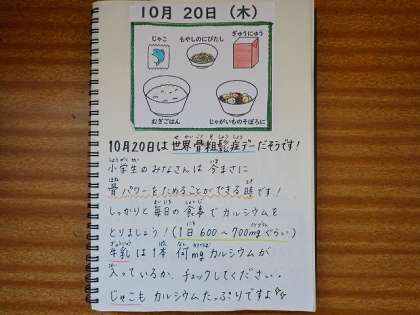 10月 20日（木）
じゃこ
もやしのにびたし
ぎゅうにゅう
むぎごはん
じゃがいものそぼろに
10月20日は世界骨粗鬆症デーだそうです！
小学生のみなさんは 今まさに
骨パワーをためることができる時です！
しっかりと毎日の食事でカルシウムを
とりましょう！(1日 600〜700mgぐらい)
牛乳は1本何mgカルシウムが
入っているか、チェックしてください。
じゃこもカルシウムたっぷりですよ